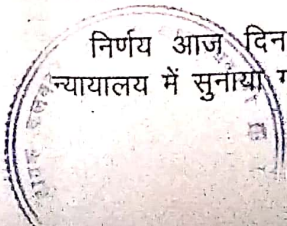 निर्णय आज दिन
न्यायालय में सुनाया ग